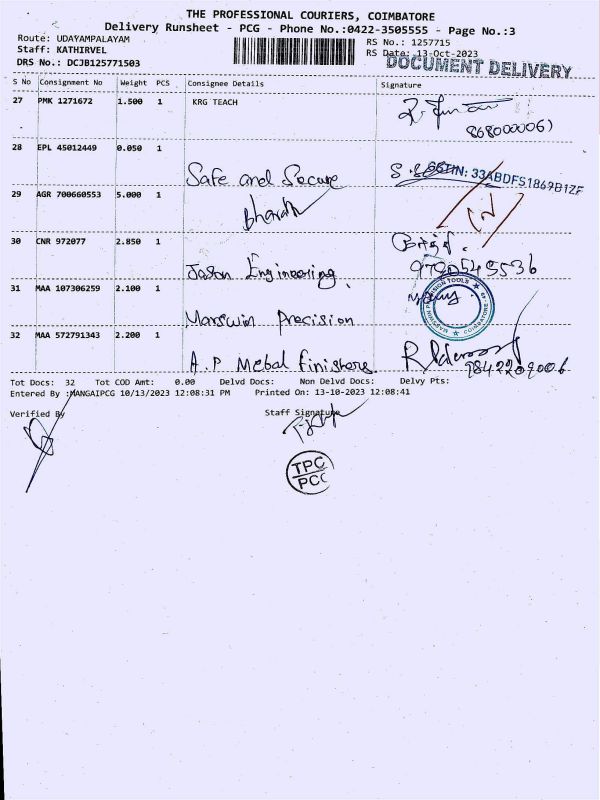 THE PROFESSIONAL COURIERS, COIMBATORE
Delivery Runsheet - PCG - Phone No.:0422-3505555 - Page No.:3
Route: UDAYAMPALAYAM
RS No.: 1257715
Staff: KATHIRVEL
RS Date: 13-Oct-2023
DRS No.: DCJB125771503
DOCUMENT DELIVERY
S No Consignment No Weight PCS Consignee Details Signature
27 PMK 1271672 1.500 1 KRG TEACH
28 EPL 45012449 0.050 1
Safe and Secure
GSTIN: 33ABDFS1869B1ZF
29 AGR 700660553 5.000 1
Bharath
30 CNR 972077 2.850 1
Jason Engineering
9790545536
31 MAA 107306259 2.100 1
Marswin Precision
32 MAA 572791343 2.200 1
A.P Metal Finishers
9842209006
Tot Docs: 32 Tot COD Amt: 0.00 Delvd Docs: Non Delvd Docs: Delvy Pts:
Entered By :MANGAIPCG 10/13/2023 12:08:31 PM Printed On: 13-10-2023 12:08:41
Verified By
Staff Signature
TPC
PCC